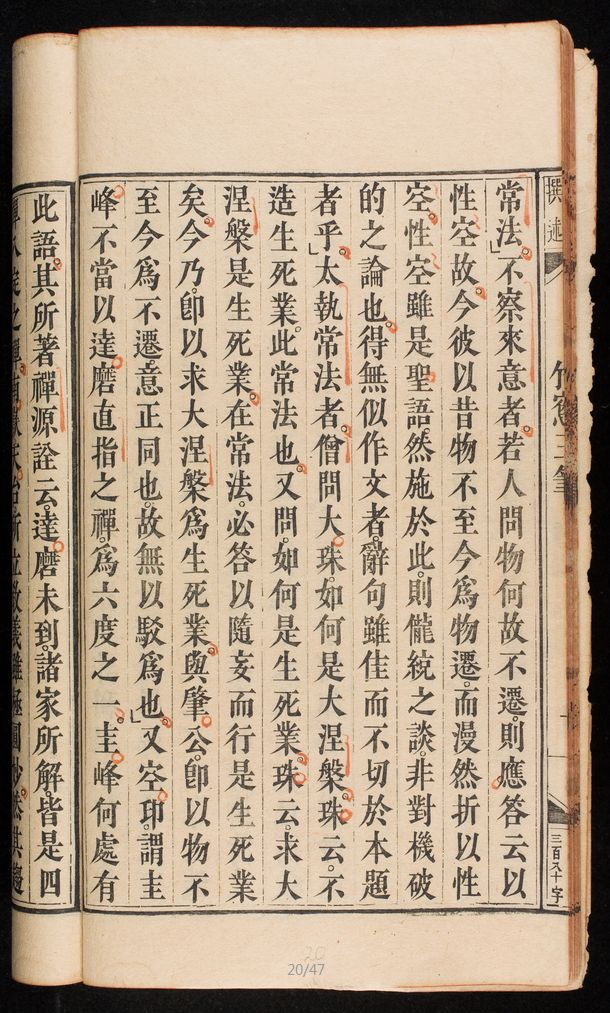 撰述
竹窗三筆
三百八十字
常法不察來意者若人問物何故不遷則應答云以
性空故今彼以昔物不至今爲物遷而漫然折以性
空性空雖是聖語然施於此則儱統之談非對機破
的之論也得無似作文者辭句雖佳而不切於本題
者乎太執常法者僧問大珠如何是大涅槃珠云不
造生死業此常法也又問如何是生死業珠云求大
涅槃是生死業在常法必答以隨妄而行是生死業
矣今乃卽以求大涅槃爲生死業與肇公卽以物不
至今爲不遷意正同也故無以駁爲也又空印謂圭
峰不當以達磨直指之禪爲六度之一圭峰何處有
此語其所著禪源詮云達磨未到諸家所解皆是四
20
20/47